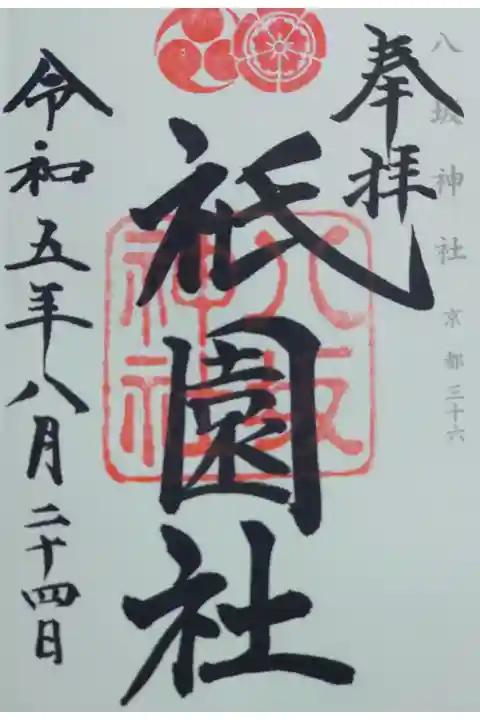 八坂神社 京都三十六
奉拝
祇園社
八坂
神社
令和五年八月二十四日